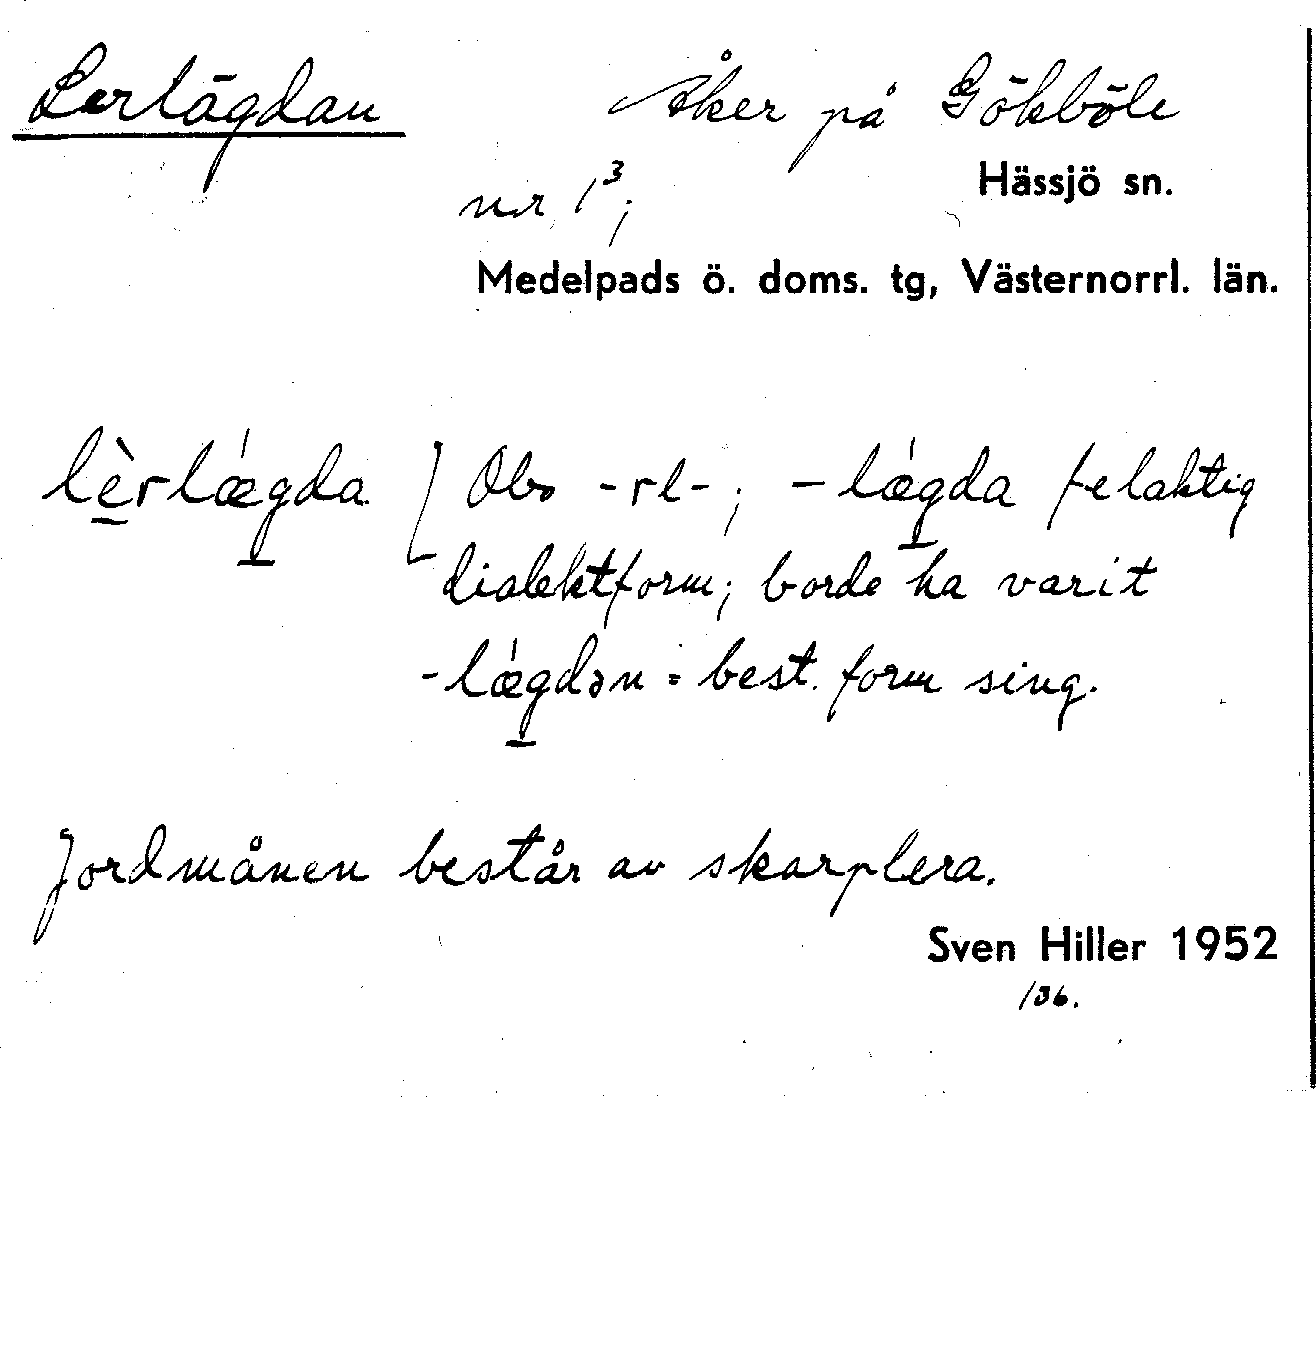 Lerlägdan Åker på Gökböle
nr 1³; Hässjö sn.
Medelpads ö. doms. tg, Västernorrl. län.
lèrlǽgda [Obs -rl-; -lǽgda felaktig
dialektform; borde ha varit
-lǽgdən = best. form sing.
Jordmånen består av skarplera.
Sven Hiller 1952
/36.